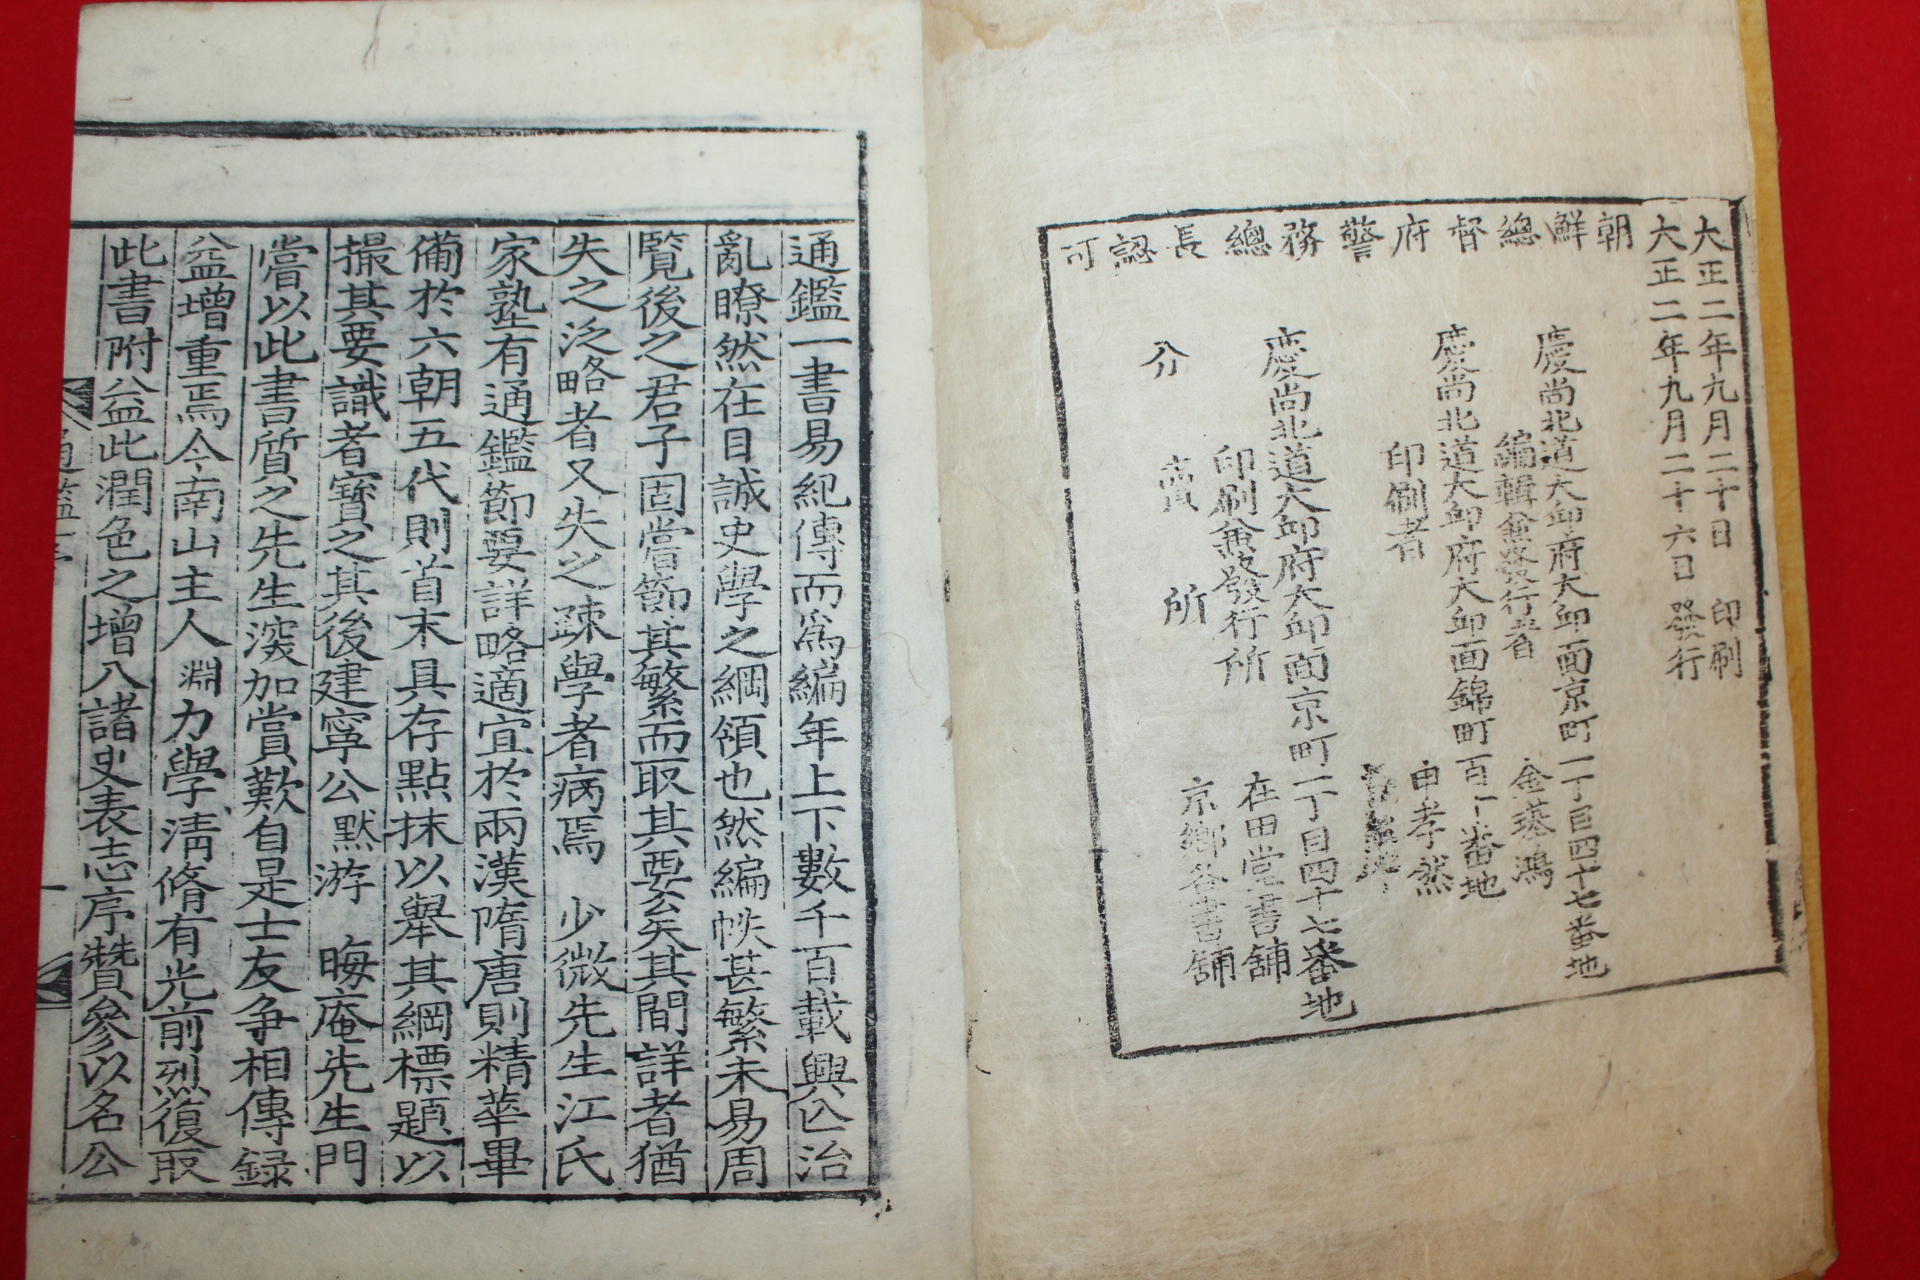 大正二年九月二十日 印刷
大正二年九月二十六日 發行
朝鮮總督府警務總長認可
慶尚北道大邱府大邱面京町一丁目四十七番地
編輯兼發行者 金璂鴻
慶尚北道大邱府大邱面錦町百一番地
印刷者 申孝然
慶尚北道大邱府大邱面京町一丁目四十七番地
印刷兼發行所 在田堂書鋪
分賣所 京鄉各書鋪
通鑑一書易紀傳而爲編年上下數千百載興亾治
亂瞭然在目誠史學之綱領也然編帙甚繁未易周
覽後之君子固嘗節其繁而取其要矣其間詳者猶
失之泛略者又失之疎學者病焉 少微先生江氏
家塾有通鑑節要詳略適宜於兩漢隋唐則精華畢
備於六朝五代則首末具存點抹以舉其綱標題以
撮其要識者寶之其後建寧公默游 晦庵先生門
嘗以此書質之先生深加賞歎自是士友争相傳録
益增重焉今南山主人 淵力學淸脩有光前烈復取
此書附益此潤色之增入諸史表志序贊參以名公
通鑑序
一